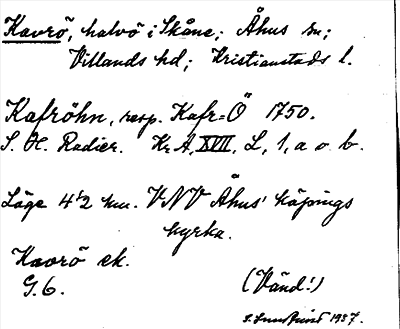 Kavrö, halvö i Skåne; Åhus sn;
Villands hd; Kristianstads l.
Kafröhn, resp. Kafr=Ö 1750.
S. H. Radier. Kr. A, XVII, L, 1, a o. b.
Läge 4 1/2 km. VNV Åhus' köpings
kyrka.
Kavrö ek.
G.6.
(Vänd!)
1937.